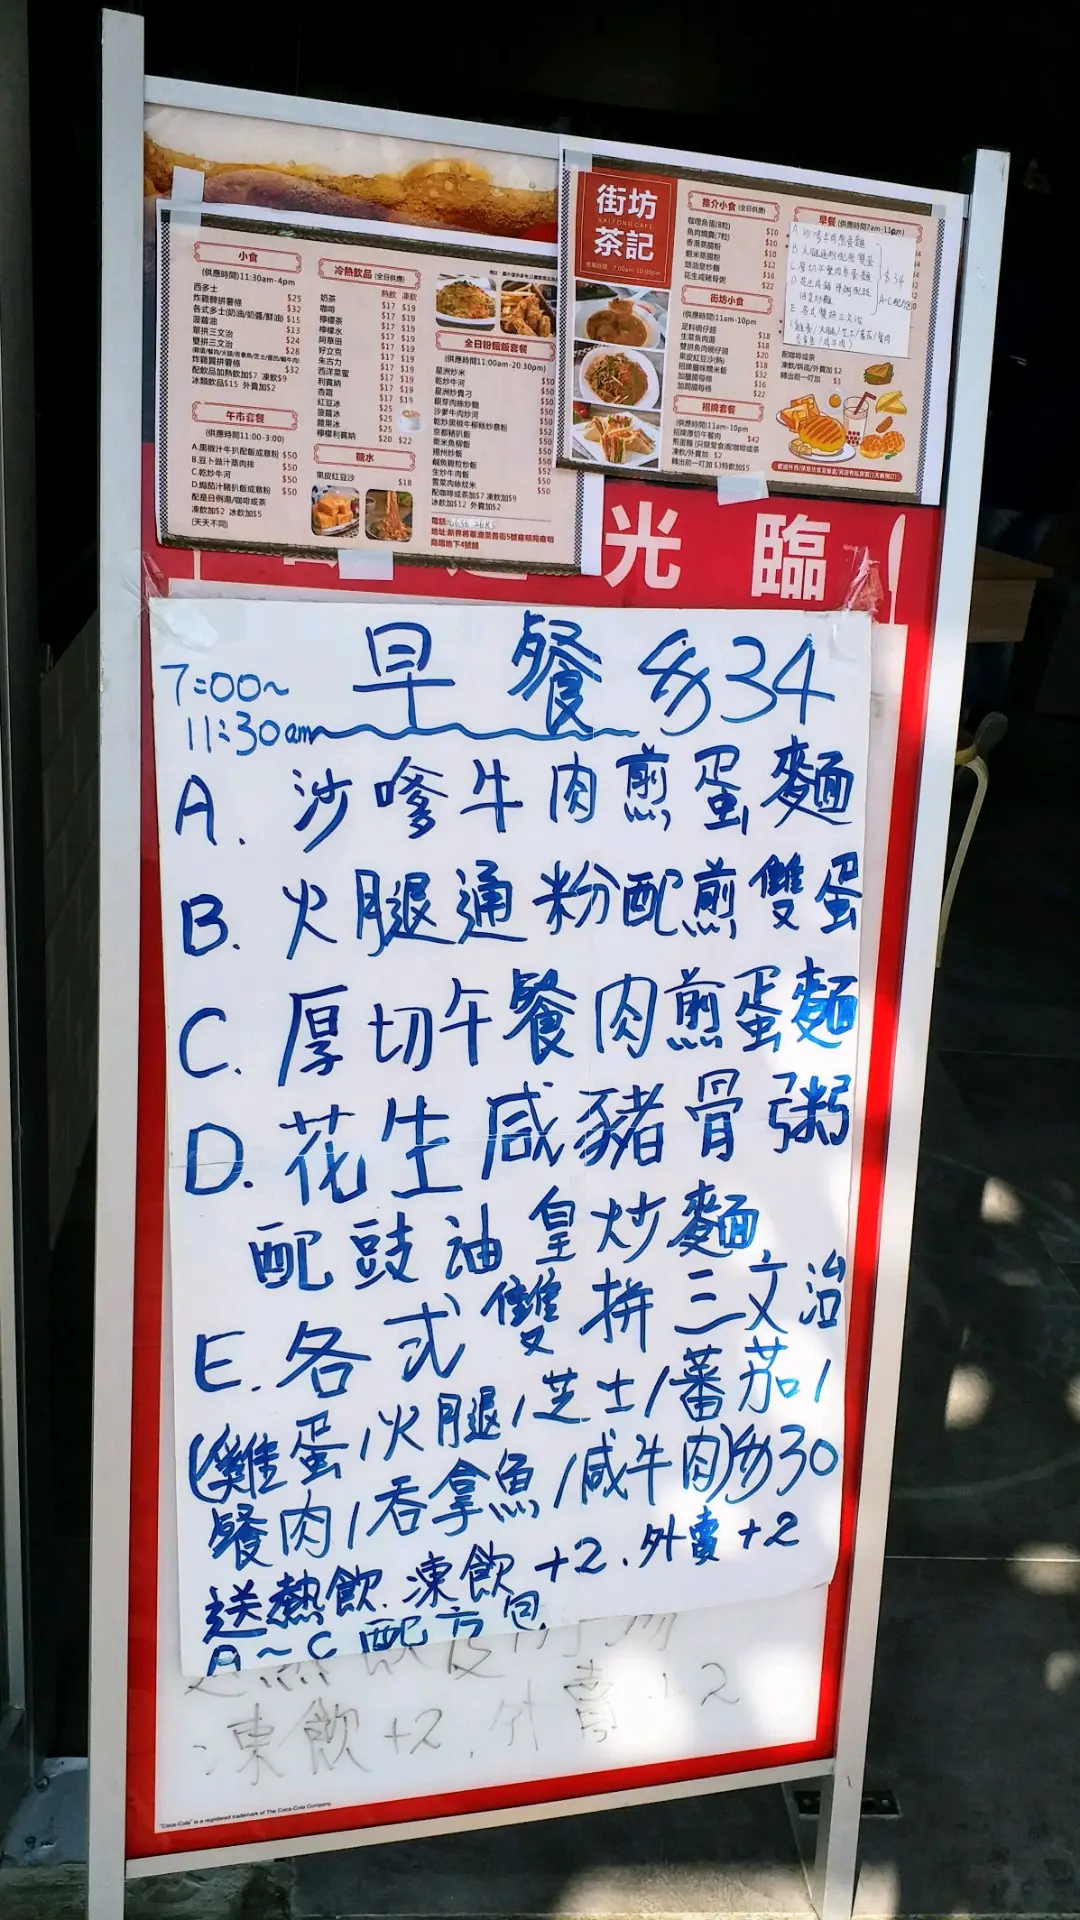 小食
(供應時間11:30am-4pm)
西多士 $25
炸雞髀拼薯條 $32
各式多士(奶油/奶醬/鮮油) $15
菠蘿油 $13
單拼三文治 $15
雙拼三文治 $24
$28
炸雞翼拼薯條 $32
配飲品加熱飲$7 凍飲$9
冰類飲品$15 外賣加$2
午市套餐
(供應時間11:00-3:00)
A.黑椒汁牛扒配飯或意粉 $50
B.豆卜豉汁蒸肉排 $50
C.乾炒牛河 $50
D.焗茄汁豬扒飯或意粉 $50
配是日例湯/咖啡或茶
凍飲加$2 冰飲加$5
(天天不同)
冷熱飲品 (全日供應)
熱飲 凍飲
奶茶 $17 $19
咖啡 $17 $19
檸檬茶 $17 $19
檸檬水 $17 $19
阿華田 $17 $19
好立克 $17 $19
朱古力 $17 $19
西洋菜蜜 $17 $19
利賓納 $17 $19
杏霜 $17 $19
紅豆冰
菠蘿冰
雜果冰
檸檬利賓納 $20 $22
糖水
果皮紅豆沙 $18
全日粉麵飯套餐
(供應時間11:00am-20:30pm)
星洲炒米 $50
乾炒牛河 $50
星洲炒貴刁 $50
銀芽肉絲炒麵 $50
沙爹牛肉炒河 $50
乾炒黑椒牛柳絲炒意粉 $50
京都豬扒飯 $50
粟米魚柳飯 $50
揚州炒飯 $50
鹹魚雞粒炒飯 $50
生炒牛肉飯 $50
雪菜肉絲炆米 $50
配咖啡或茶加$7 凍飲加$9
冰飲加$12 外賣加$2
街坊
KAIFONG CAFE
茶記
營業時間 7:00am-10:00pm
推介小食 (全日供應)
咖喱魚蛋(8粒) $10
魚肉燒賣(7粒) $10
香滑蒸腸粉 $10
蝦米蒸腸粉 $12
豉油皇炒麵 $16
花生咸豬骨粥 $22
街坊小食
(供應時間11am-10pm)
足料碗仔翅 $18
生菜魚肉湯 $18
雙拼魚肉碗仔翅 $20
果皮紅豆沙(熱) $18
招牌臘味糯米飯 $32
加臘腸每條 $16
加潤腸每條 $16
招牌套餐
(供應時間11am-10pm)
招牌厚切午餐肉 $42
凍飲/外加 $2
轉出前一叮加 $3
早餐 (供應時間7am-11pm)
A 沙嗲牛肉煎蛋麵
B 火腿通粉配煎雙蛋
C 厚切午餐肉煎蛋麵
$34
E 各式雙拼三文治
配咖啡或茶
凍飲/烘底/外賣加 $2
轉出前一叮加 $3
光臨
7:00~
11:30am
早餐 $34
A. 沙嗲牛肉煎蛋麵
B. 火腿通粉配煎雙蛋
C. 厚切午餐肉煎蛋麵
D. 花生咸豬骨粥
配豉油皇炒麵
E. 各式雙拼三文治
(雞蛋/火腿/芝士/蕃茄/
餐肉/吞拿魚/咸牛肉)$30
送熱飲.凍飲+2.外賣+2
A~C配方包
凍飲+2,外賣+2
"Coca-Cola" is a registered trademark of The Coca-Cola Company.